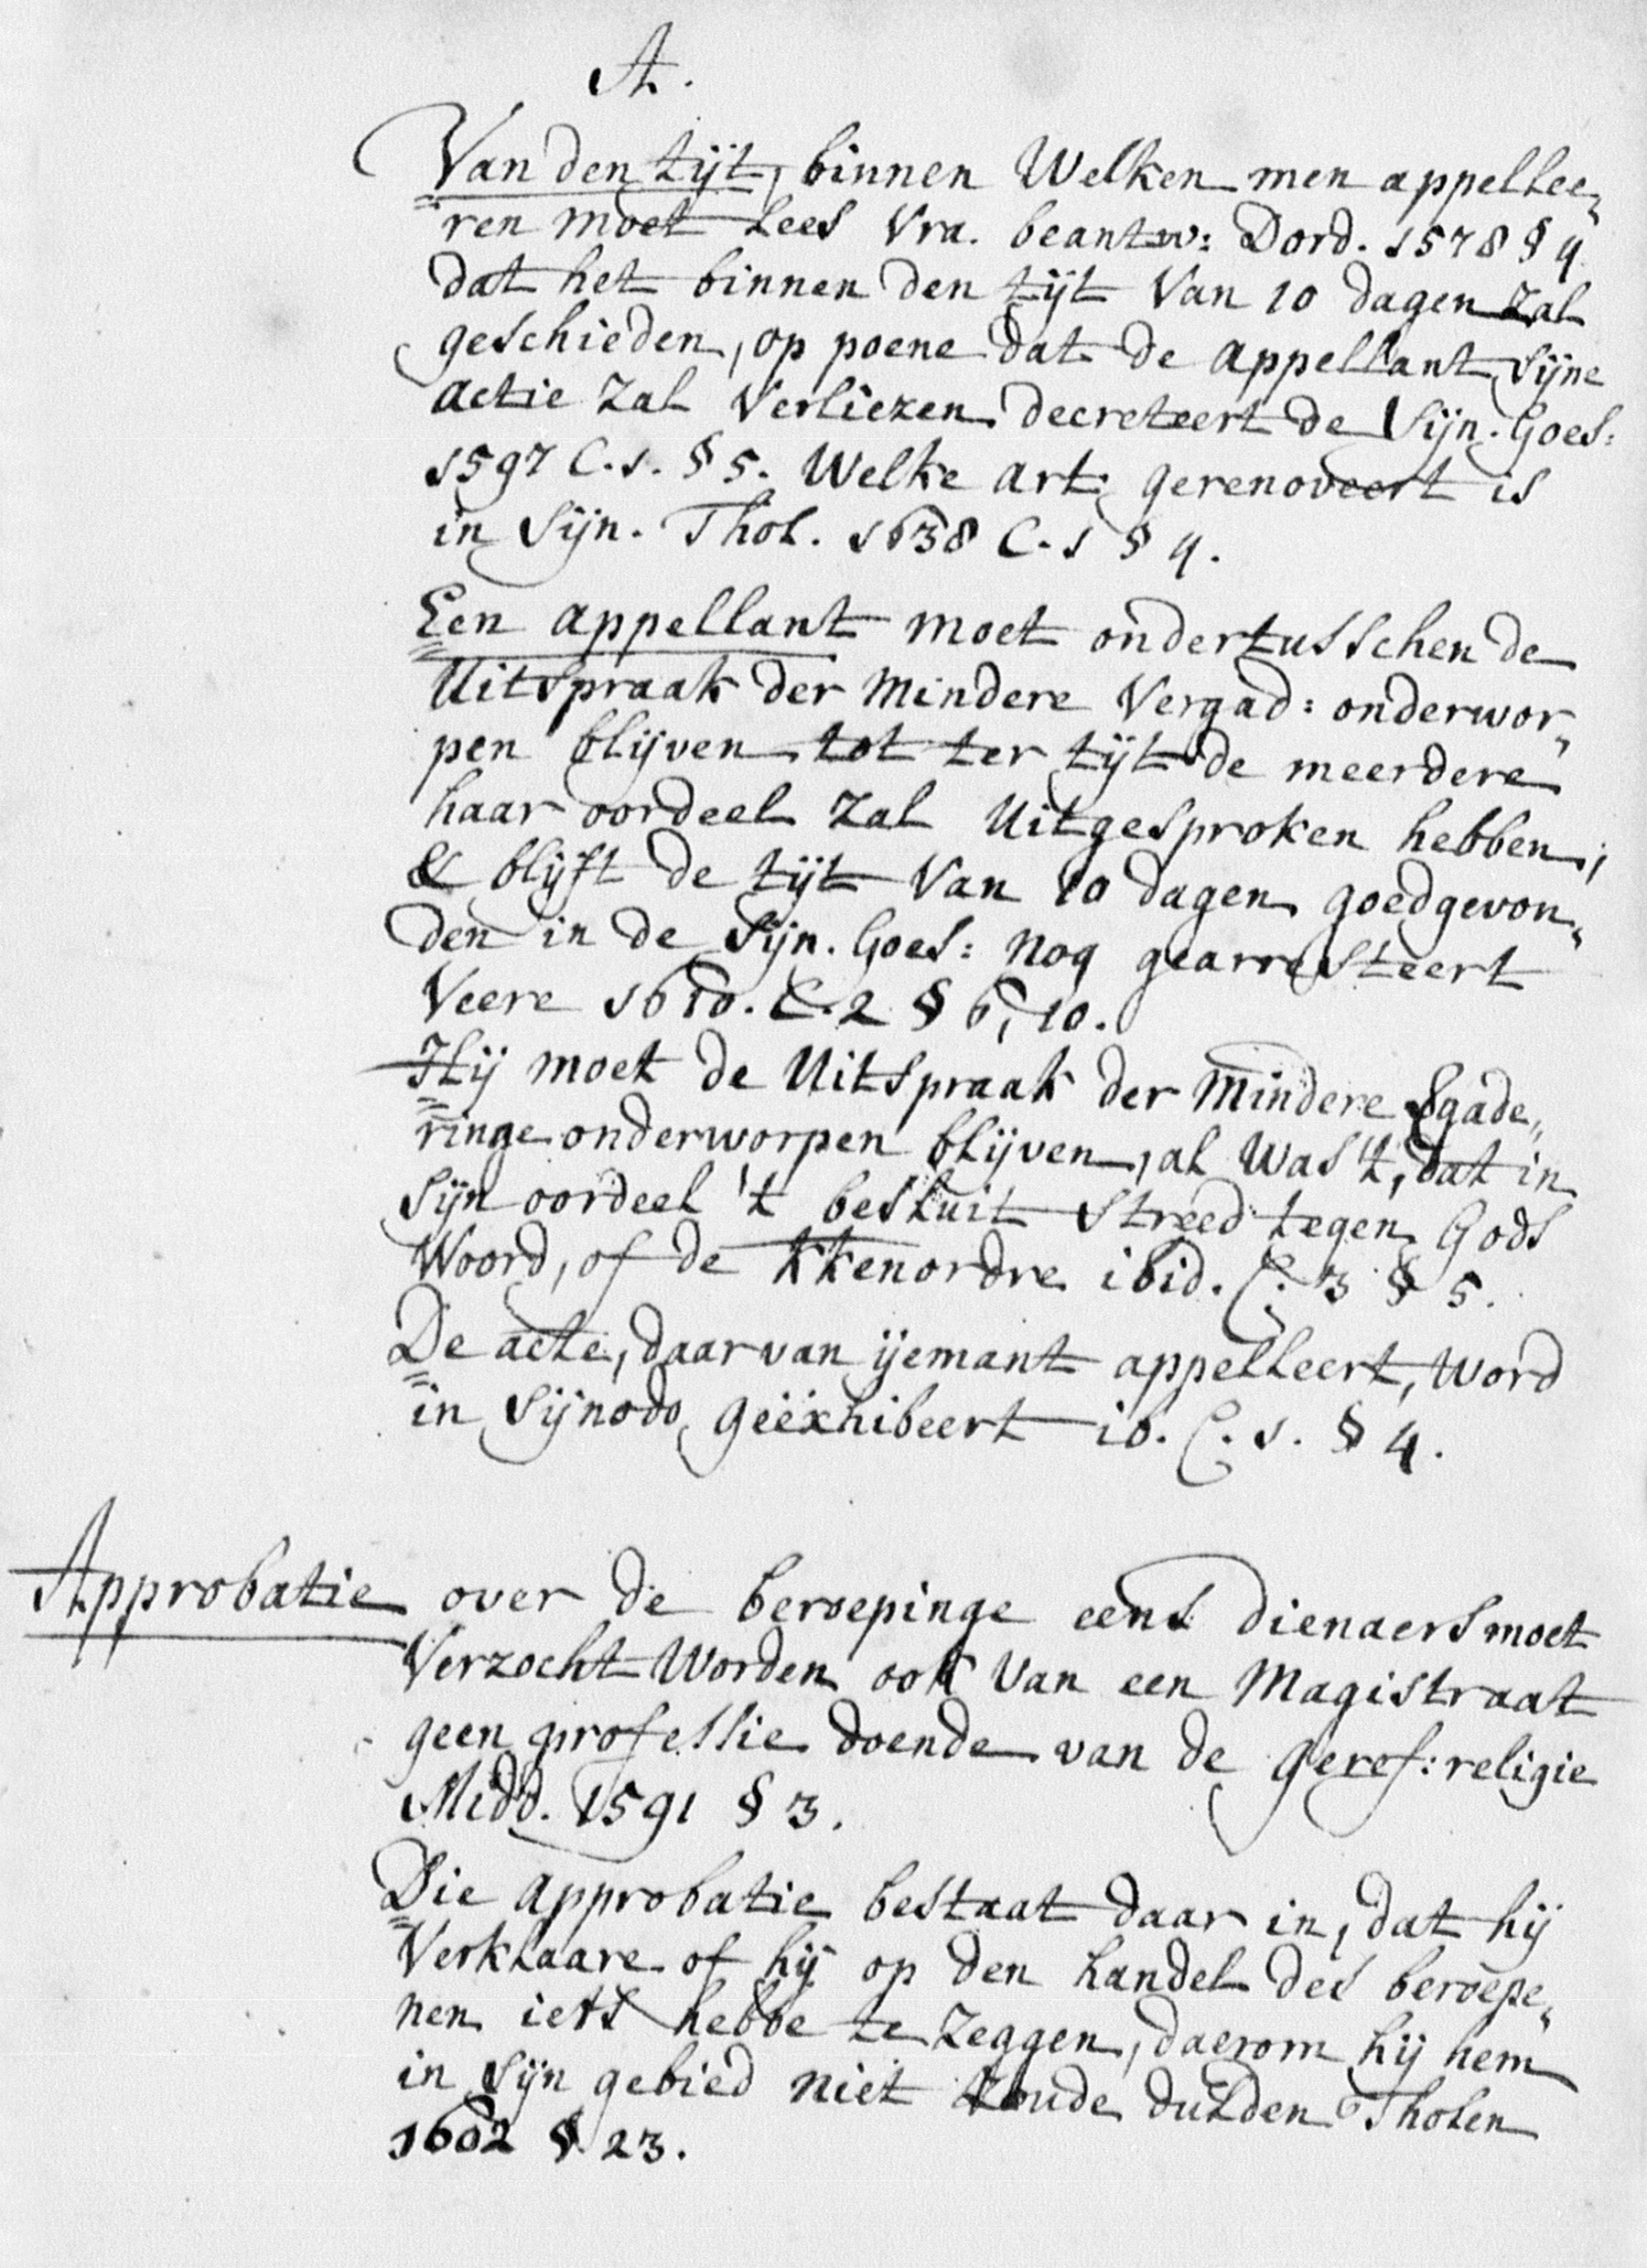 A.
Van den tijt, binnen Welken men appellee„
ren moet Lees Vra. beantw: Dord. 1578 § 4.
dat het binnen den tijt Van 10 dagen zal
geschieden, op poene dat de appellant sijne
actie zal Verliezen decreteert de Sijn. Goes:
1597 C. 1. § 5. Welke art: gerenoveert is
in Sijn. Thol. 1638 C. 1 § 4.
Een appellant moet ondertusschen de
Uitspraak der Mindere Vergad: onderwor„
pen blijven tot ter tijt de meerdere
haar oordeel zal Uitgesproken hebben;
& blijft de tijt Van 10 dagen goedgevon„
den in de Sijn. Goes: nog gearresteert
Veere 1610. C. 2 § 6, 10.
Hij moet de Uitspraak der Mindere Vgade„
ringe onderworpen blijven, al Was 't, dat in
Sijn oordeel 't besluit streed tegen Gods
Woord, of de KKenordre ibid. C: 3 § 5.
De acte, daar van ijemant appelleert, Word
in Sijnodo geëxhibeert ib. C. 1. § 4.
Approbatie over de beroepinge eens Dienaers moet
Verzocht Worden ook Van een Magistraat
geen professie doende van de geref: religie
Midd. 1591 § 3.
Die approbatie bestaat daar in, dat hij
Verklaare of hij op den handel des beroepe„
nen iets hebbe te Zeggen, daerom hij hem
in Sijn gebied niet Zoude dulden Tholen
1602 § 23.